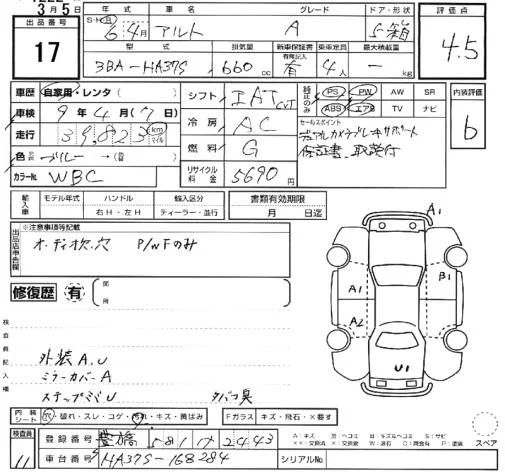 3月5日
出品番号 17
年式 車名 グレード ドア・形状 評価点
S・H・R 6年4月 アルト A 5箱 4.5
型式 排気量 新車保証書 乗車定員 最大積載量
有無記入
3BA-HA37S 660cc 有 4人 - kg
車歴 自家用・レンタ( )
シフト IAT CVT
純正のみ PS PW AW SR
ABS エアB TV ナビ
内装評価 b
車検 9年4月(7日)
冷房 AC
セールスポイント
デュアルカメラブレーキサポート
保証書、取説付
走行 39,823 km マイル
燃料 G
色 ブルー→( )
リサイクル料金 5690円
カラーNo. WBC
輸入車 モデル年式 ハンドル 輸入区分 書類有効期限
右H・左H ディーラー・並行 月 日迄
※注意事項等記載
出品店申告欄
オーディオ欠.穴 P/WFのみ
修復歴 有 部所
A1
A1 B1
A2
U1
検査員記入欄
外装A.U
ミラーカバーA
ステップジU タバコ臭
内装シート 穴・破れ・スレ・コゲ・汚れ・キズ・黄ばみ Fガラス キズ・飛石・×要す
検査員 11
登録番号 豊橋 581 ワ 2443
A：キズ U：ヘコミ B：キズ&ヘコミ S：サビ
XX：交換済 X：要交換 W：波有 C：腐食有 P：塗装
スペア
車台番号 HA37S-168284 シリアルNo.